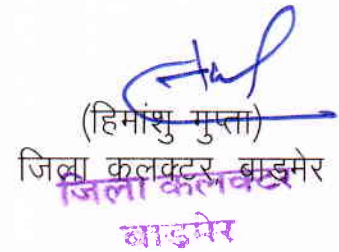 (हिमांशु गुप्ता)
जिला कलक्टर, बाड़मेर
जिला कलक्टर
बाड़मेर